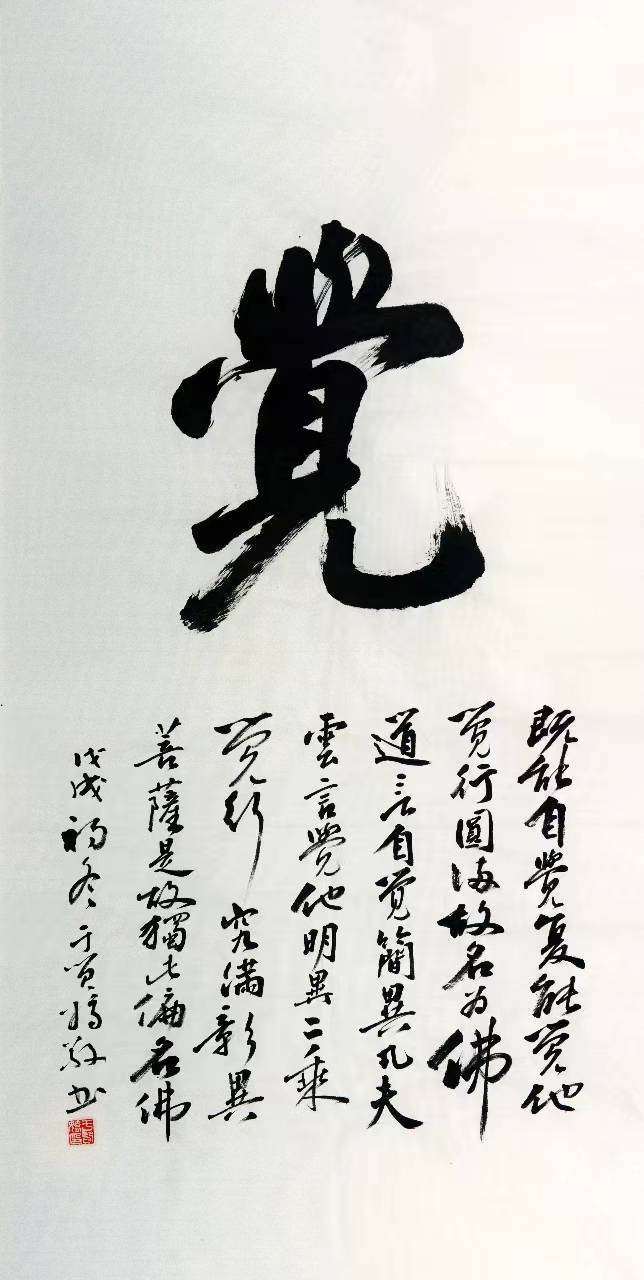 覺
既能自覺复能覚他
覚行圓满故名为佛
道言自覚簡異凡夫
雲言覺他明異二乘
覚行究满彰異
菩薩是故獨此偏名佛
戊戌初冬于
敬书